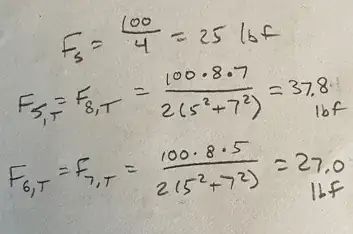 F_s = 100/4 = 25 lbf
F_5,T = F_8,T = 100·8·7 / 2(5²+7²) = 37.8 lbf
F_6,T = F_7,T = 100·8·5 / 2(5²+7²) = 27.0 lbf